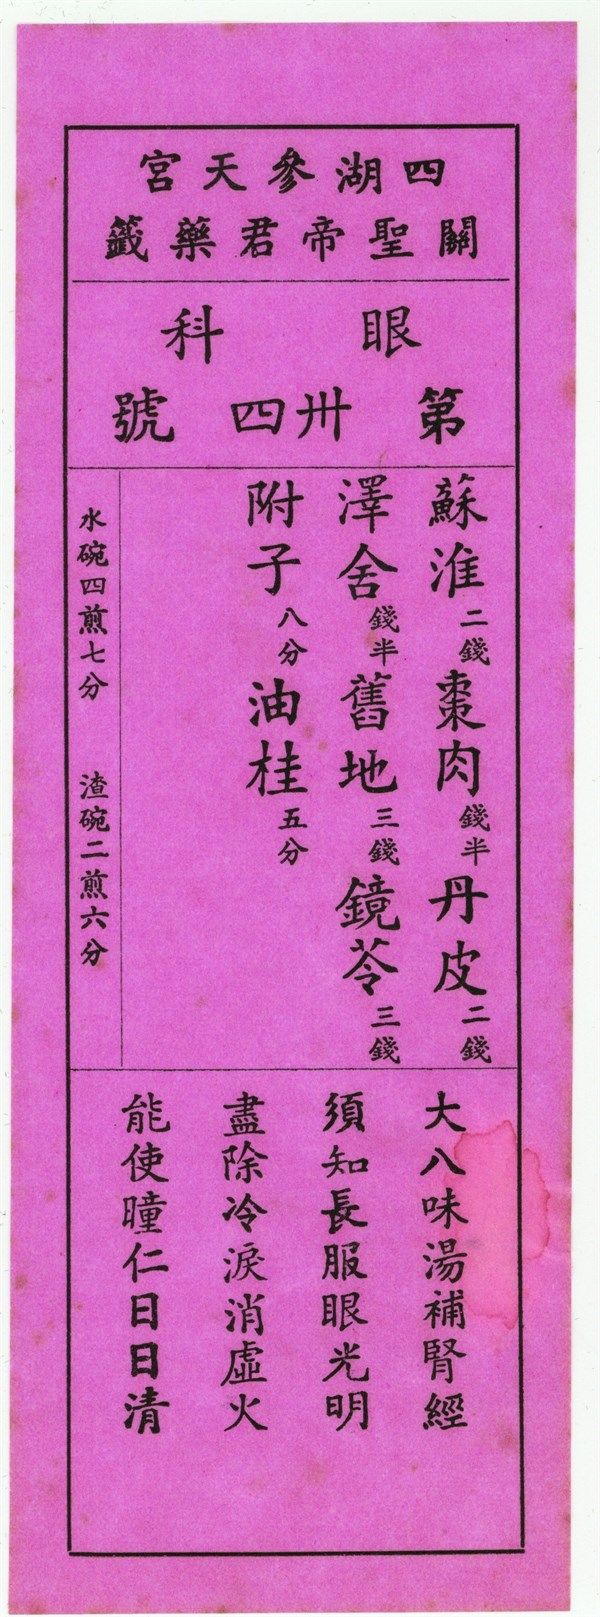 四湖參天宮
關聖帝君藥籤
眼科
第卅四號
蘇淮二錢棗肉錢半丹皮二錢
澤舍錢半舊地三錢鏡苓三錢
附子八分油桂五分
水碗四煎七分 渣碗二煎六分
大八味湯補腎經
須知長服眼光明
盡除冷淚消虛火
能使瞳仁日日清